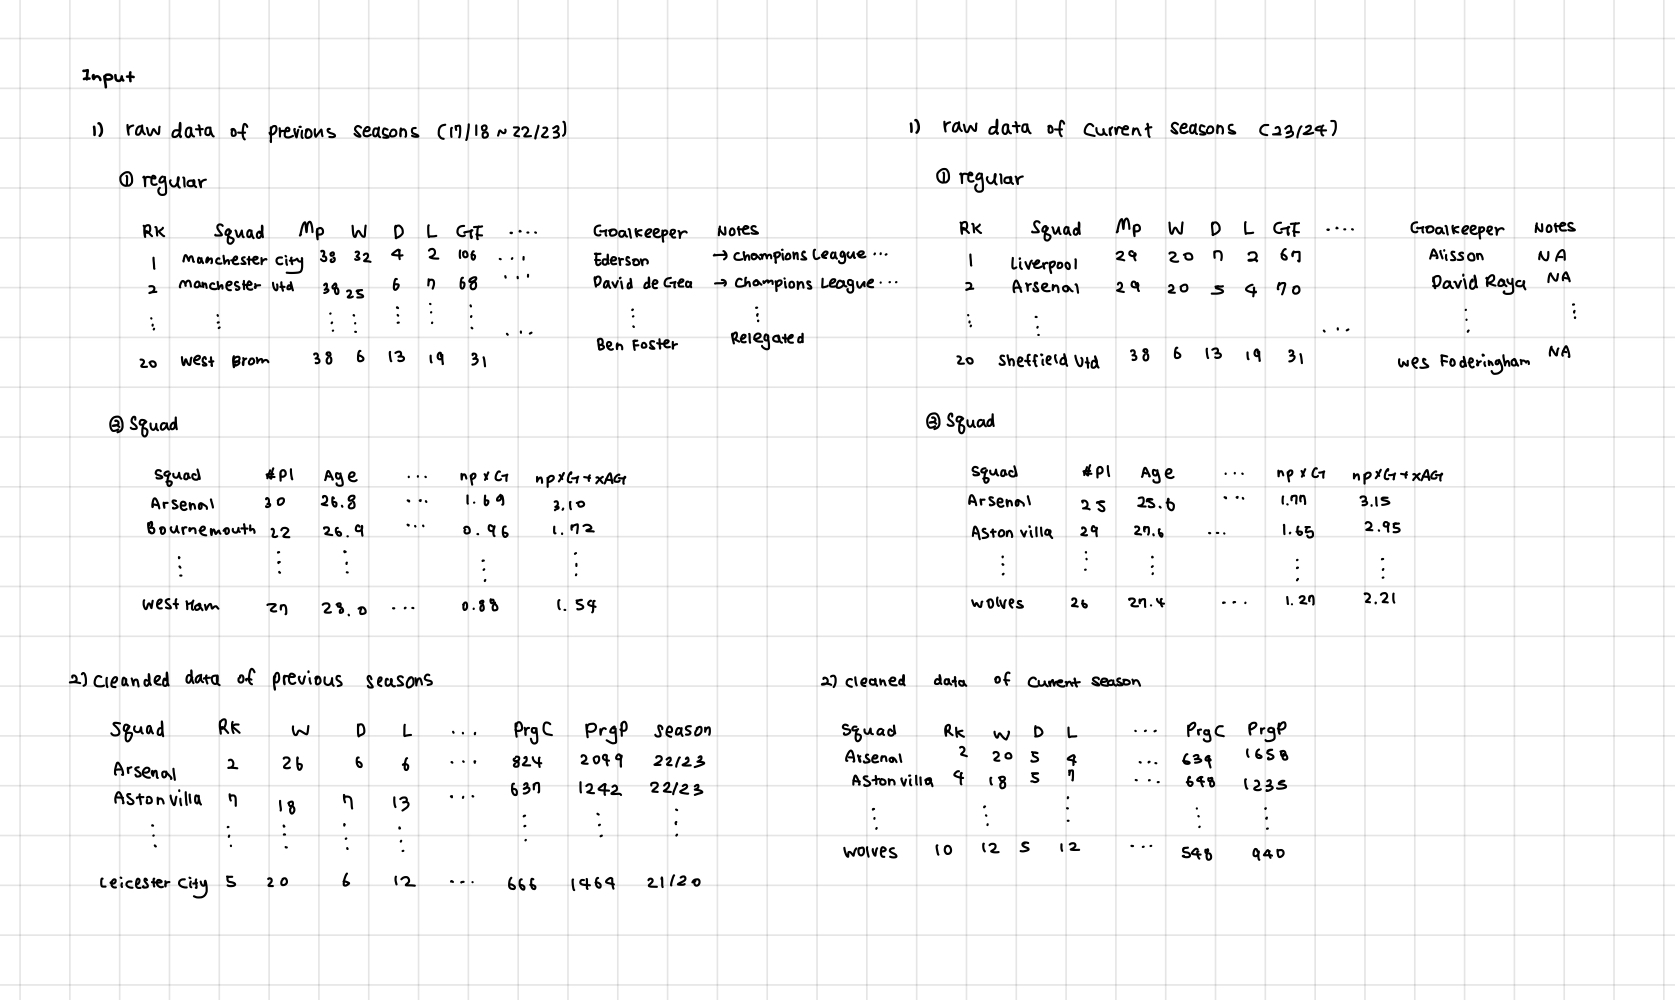 Input
1) raw data of previous seasons (17/18 ~ 22/23)
① regular
RK Squad Mp W D L GF ....
Goalkeeper Notes
1 Manchester City 38 32 4 2 106 ...
Ederson → Champions League ...
2 Manchester Utd 38 25 6 7 68 ...
David de Gea → Champions League ...
...
Ben Foster Relegated
20 West Brom 38 6 13 19 31
② Squad
Squad #Pl Age ... npxG npxG+xAG
Arsenal 30 26.8 ... 1.69 3.10
Bournemouth 22 26.9 ... 0.96 1.72
West Ham 27 28.0 ... 0.88 1.54
2) cleanded data of previous seasons
Squad RK W D L ... PrgC PrgP season
Arsenal 2 26 6 6 ... 824 2049 22/23
Aston villa 7 18 7 13 ... 637 1242 22/23
Leicester City 5 20 6 12 ... 666 1464 21/20
1) raw data of current seasons (23/24)
① regular
RK Squad Mp W D L GF ....
Goalkeeper Notes
1 Liverpool 29 20 7 2 67
Alisson NA
2 Arsenal 29 20 5 4 70
David Raya NA
...
20 Sheffield Utd 38 6 13 19 31
Wes Foderingham NA
② Squad
Squad #Pl Age ... npxG npxG+xAG
Arsenal 25 25.6 ... 1.77 3.15
Aston villa 29 27.6 ... 1.65 2.95
wolves 26 27.4 ... 1.27 2.21
2) cleaned data of current season
Squad RK W D L ... PrgC PrgP
Arsenal 2 20 5 4 ... 634 1658
Aston villa 4 18 5 7 ... 648 1235
wolves 10 12 5 12 ... 548 940